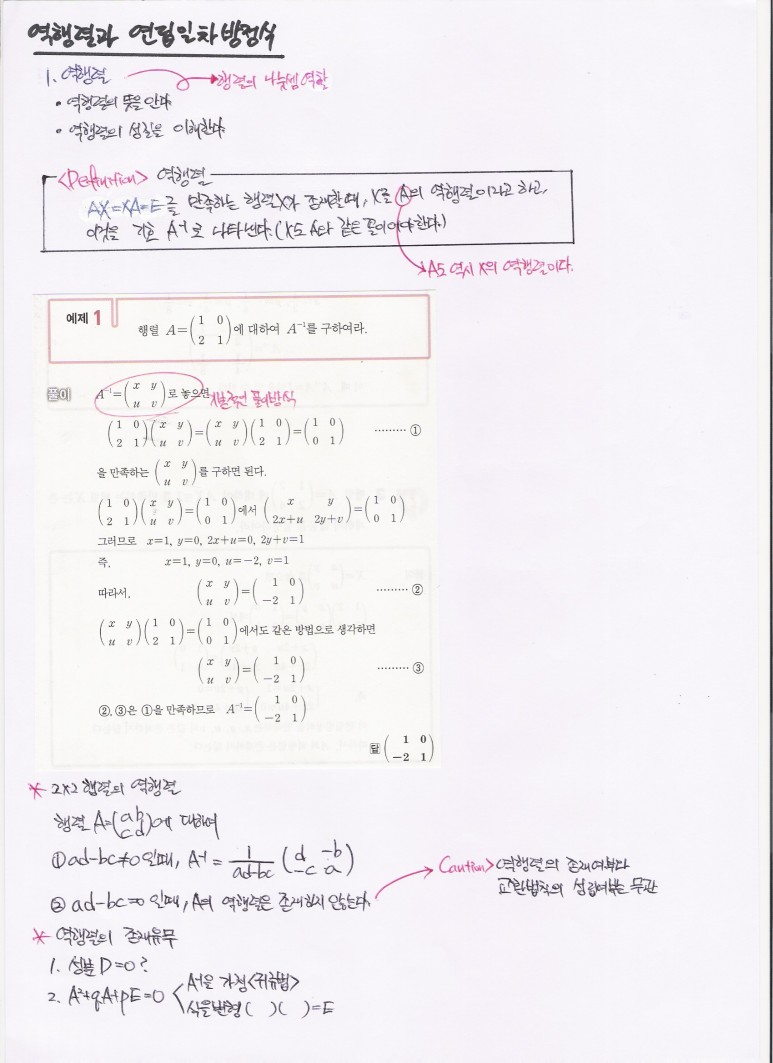 역행렬과 연립일차방정식
1. 역행렬 → 행렬의 나눗셈 역할
• 역행렬의 뜻을 안다
• 역행렬의 성질을 이해한다
<Definition> 역행렬
AX=XA=E를 만족하는 행렬 X가 존재할 때, X를 A의 역행렬이라고 하고,
이것을 기호 A⁻¹로 나타낸다. (X도 A와 같은 꼴이어야 한다.)
A도 역시 X의 역행렬이다.
예제 1
행렬 A=(1 0 / 2 1)에 대하여 A⁻¹를 구하여라.
풀이 A⁻¹=(x y / u v)로 놓으면 풀이방식
(1 0 / 2 1)(x y / u v)=(x y / u v)(1 0 / 2 1)=(1 0 / 0 1) ……… ①
을 만족하는 (x y / u v)를 구하면 된다.
(1 0 / 2 1)(x y / u v)=(1 0 / 0 1)에서 (x y / 2x+u 2y+v)=(1 0 / 0 1)
그러므로 x=1, y=0, 2x+u=0, 2y+v=1
즉, x=1, y=0, u=−2, v=1
따라서, (x y / u v)=(1 0 / −2 1) ……… ②
(x y / u v)(1 0 / 2 1)=(1 0 / 0 1)에서도 같은 방법으로 생각하면
(x y / u v)=(1 0 / −2 1) ……… ③
②, ③은 ①을 만족하므로 A⁻¹=(1 0 / −2 1)
답 (1 0 / −2 1)
* 2×2 행렬의 역행렬
행렬 A=(a b / c d)에 대하여
① ad-bc≠0 일때, A⁻¹ = 1/ad-bc (d -b / -c a)
② ad-bc=0 일때, A의 역행렬은 존재하지 않는다.
Caution> 역행렬의 존재여부와
교환법칙의 성립여부는 무관
* 역행렬의 존재유무
1. 성분 D=0?
2. A²+qA+pE=0 < A⁻¹을 가정 <귀류법>
식을변형 ( )( )=E